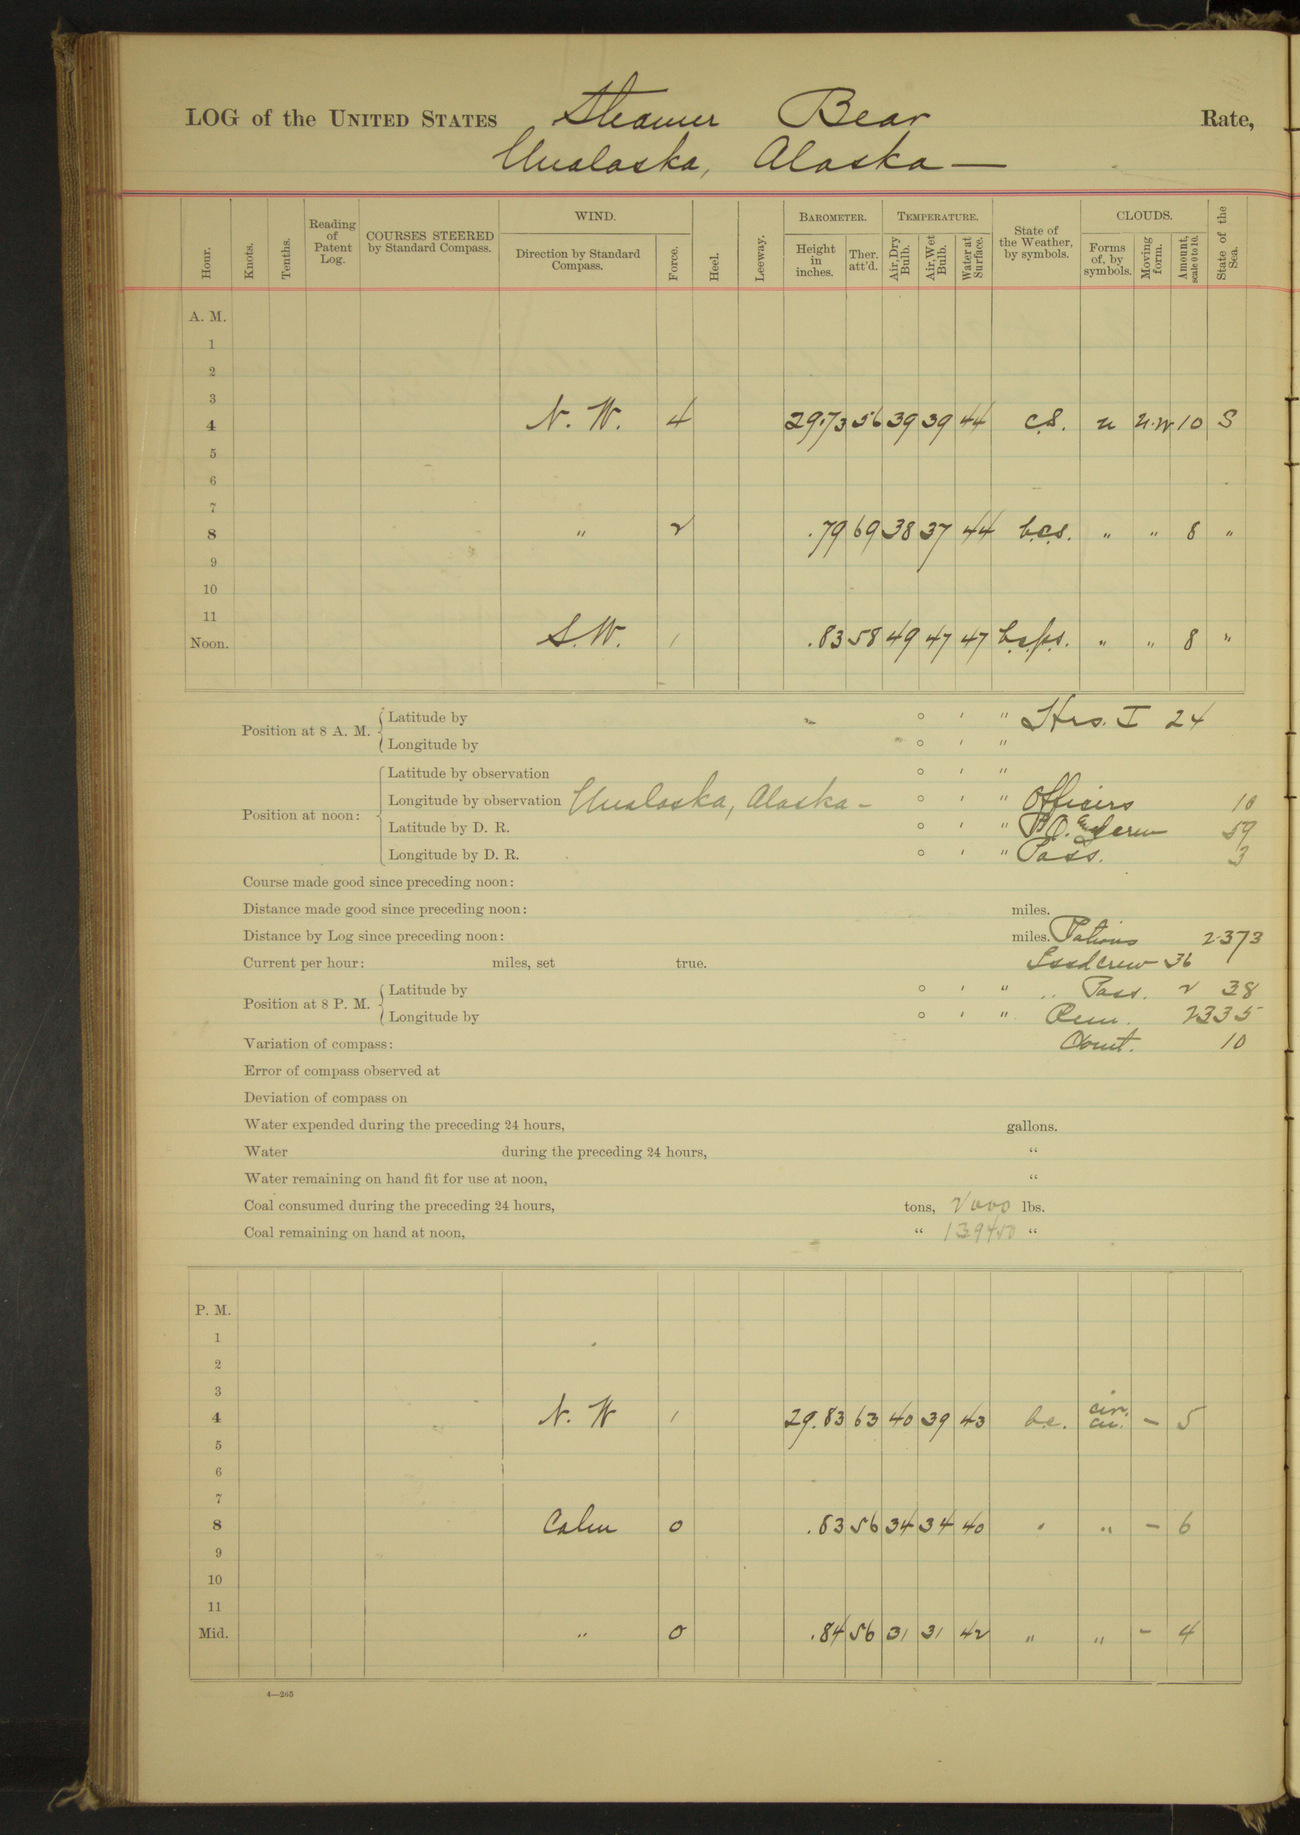 LOG of the UNITED STATES Steamer Bear Rate,
Unalaska, Alaska —
Hour. Knots. Tenths. Reading of Patent Log. COURSES STEERED by Standard Compass. WIND. Direction by Standard Compass. Force. Heel. Leeway. BAROMETER. Height in inches. Ther. att'd. TEMPERATURE. Air, Dry Bulb. Air, Wet Bulb. Water at Surface. State of the Weather, by symbols. CLOUDS. Forms of, by symbols. Moving form. Amount, scale 0 to 10. State of the Sea.
A. M.
1
2
3
4 N. W. 4 29.73 56 39 39 44 c.s. n N.W 10 S
5
6
7
8 " 2 .79 69 38 37 44 b.c.s. " " 8 "
9
10
11
Noon. S. W. 1 .83 58 49 47 47 b.c.p.s. " " 8 "
Position at 8 A. M. Latitude by ° ' " Hrs. I 24
Longitude by ° ' "
Position at noon: Latitude by observation ° ' "
Longitude by observation Unalaska, Alaska – ° ' " Officers 10
Latitude by D. R. ° ' " crew 59
Longitude by D. R. ° ' " Pass. 3
Course made good since preceding noon:
Distance made good since preceding noon: miles.
Distance by Log since preceding noon: miles. Rations 2373
Current per hour: miles, set true. Issd crew 36
Position at 8 P. M. Latitude by ° ' " " Pass. 2 38
Longitude by ° ' " Rem. 2335
Variation of compass: Comt. 10
Error of compass observed at
Deviation of compass on
Water expended during the preceding 24 hours, gallons.
Water during the preceding 24 hours, "
Water remaining on hand fit for use at noon, "
Coal consumed during the preceding 24 hours, tons, 2000 lbs.
Coal remaining on hand at noon, " 139450 "
P. M.
1
2
3
4 N. W 1 29.83 63 40 39 43 b.c. cir. cu. – 5
5
6
7
8 Calm 0 .83 56 34 34 40 " " – 6
9
10
11
Mid. " 0 .84 56 31 31 42 " " – 4
4—265